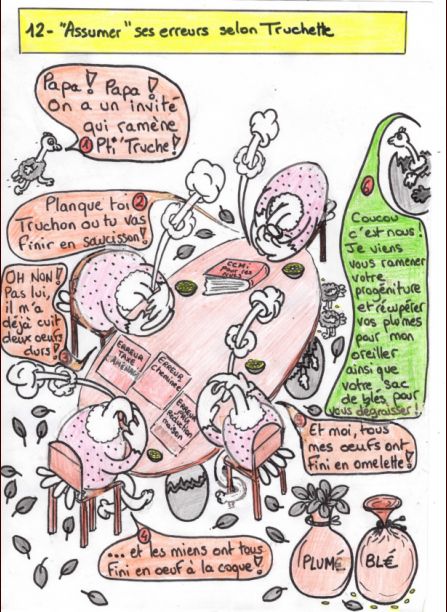 12- "Assumer" ses erreurs selon Truchette
Papa! Papa!
On a un invité
qui ramène
1 Pti'Truche!
Planque toi 2
Truchon ou tu vas
Finir en saucisson!
OH NON!
Pas lui,
il m'a
déjà cuit
deux oeufs
durs! 3
4
... et les miens ont tous
Fini en oeuf à la coque!
Et moi, tous
mes oeufs ont
Fini en omelette!
6
Coucou
c'est nous!
Je viens
vous ramener
votre
progéniture
et récupérer
vos plumes
pour mon
oreiller
ainsi que
votre sac
de blés pour
vous dégraisser!
Pour les
ERREUR
TAXE
D'AMÉNAG
ERREUR
Cheminée
maison
PLUMÉ
BLÉ